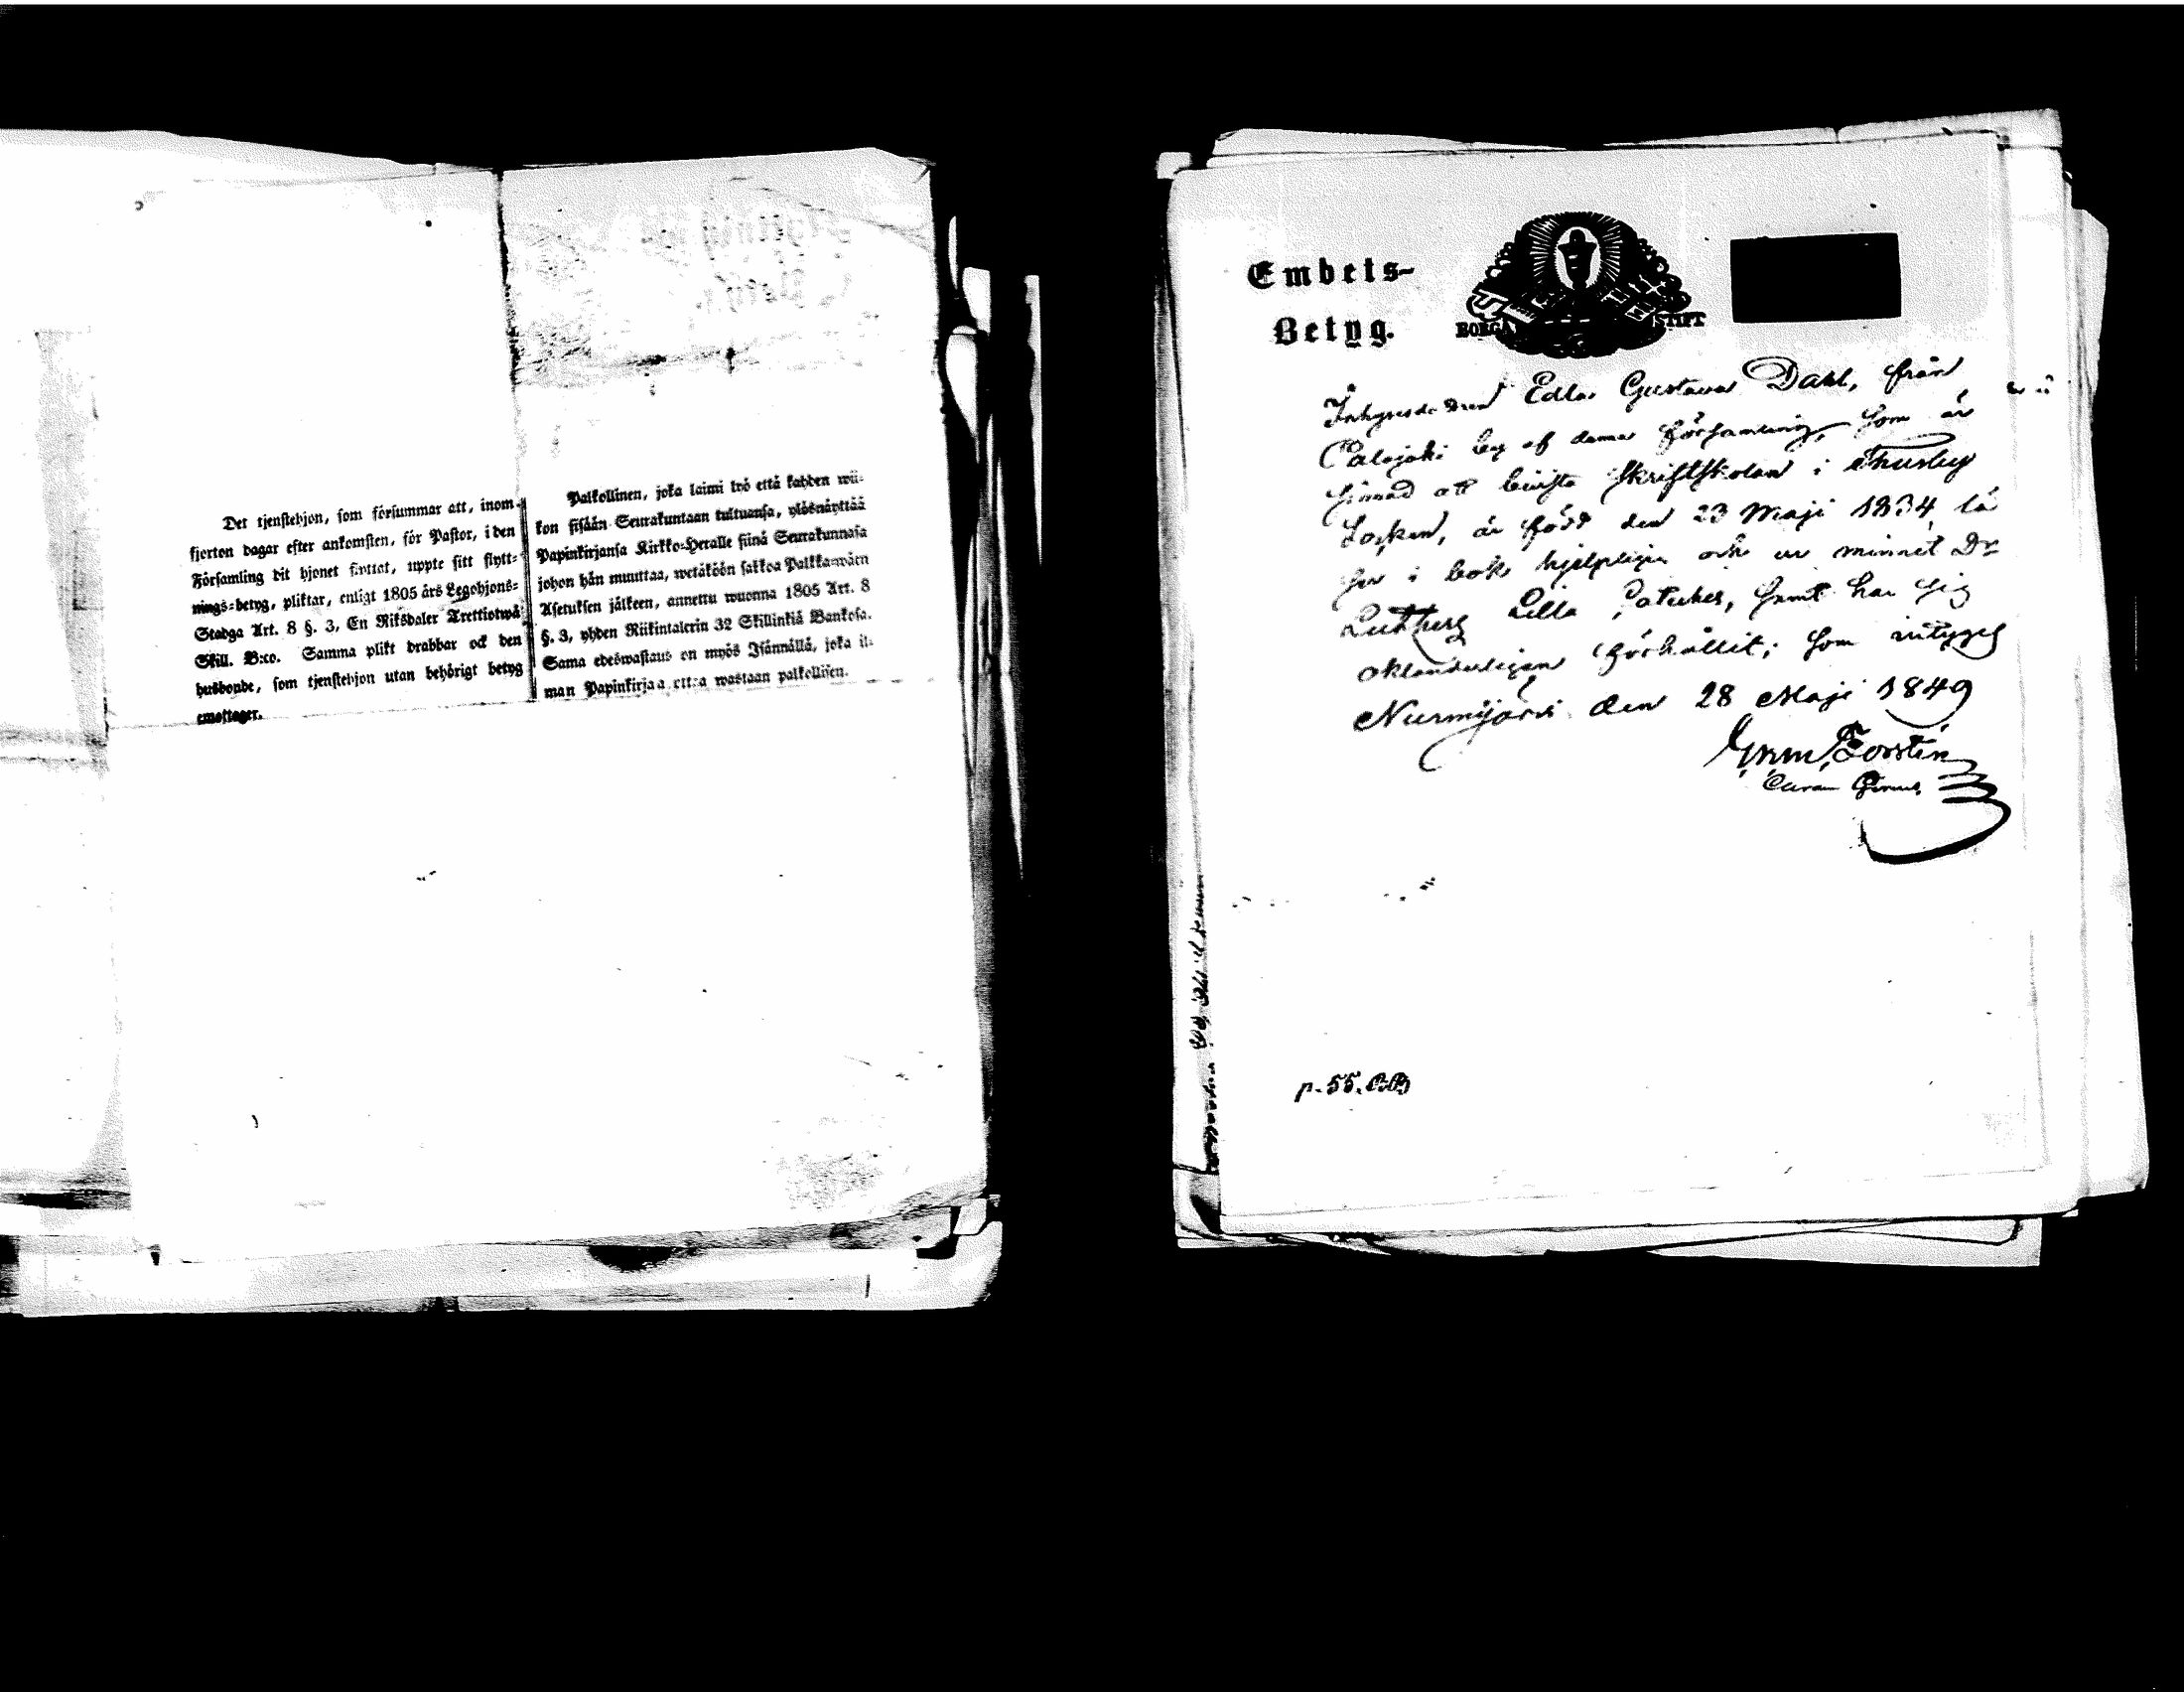 Det tjenstehjon, som försummar att, inom
fjorton dagar efter ankomsten, för Pastor, i den
Församling dit hjonet flyttat, uppte sitt flytt-
nings-betyg, pliktar, enligt 1805 års Legohjons-
Stadga Art. 8 §. 3, En Riksdaler Trettiotwå
Skill. B:co. Samma plikt drabbar ock den
husbonde, som tjenstehjon utan behörigt betyg
emottager.
Palkollinen, joka laimi lyö että kahden wii-
kon sisään Seurakuntaan tultuansa, ylösnäyttää
Papinkirjansa Kirkko-Herralle siinä Seurakunnasa
johon hän muuttaa, wetäköön sakkoa Palkka-wäen
Asetuksen jälkeen, annettu wuonna 1805 Art. 8
§. 3, yhden Riikintalerin 32 Skillinkiä Bankosa.
Sama edeswastaus on myös Isännällä, joka il-
man Papinkirjaa ottaa wastaan palkollisen.
Embets-
Betyg.
BORGÅ STIFT
Edla Gustava Dahl, från
Palojoki by af denna församling, som är
sinnad att bevista Skriftskolan i Thusby
Socken, är född den 23 Maji 1834 lä
ser i bok hjelpligen och ur minnet Dr
Luthers Lilla Cateches, samt har sig
oklanderligen förhållit; som intygas
Nurmijärvi den 28 Maji 1849
Forstén
p. 55.